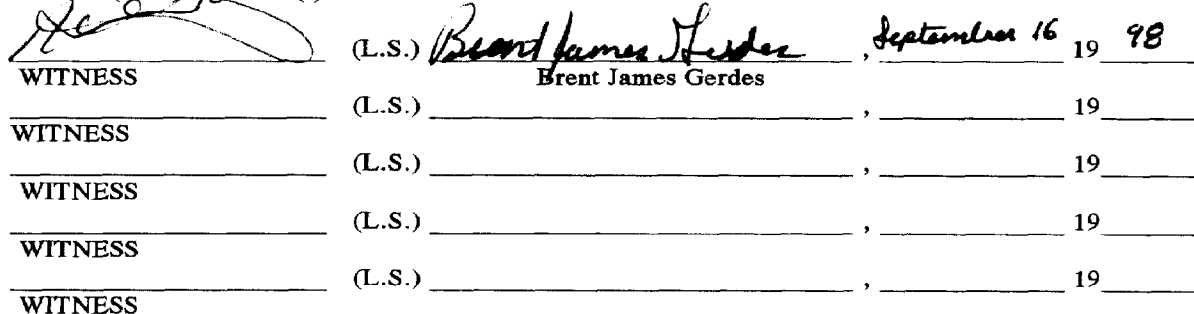 (L.S.) Brent James Gerdes , September 16 19 98
WITNESS Brent James Gerdes
(L.S.) , 19
WITNESS
(L.S.) , 19
WITNESS
(L.S.) , 19
WITNESS
(L.S.) , 19
WITNESS